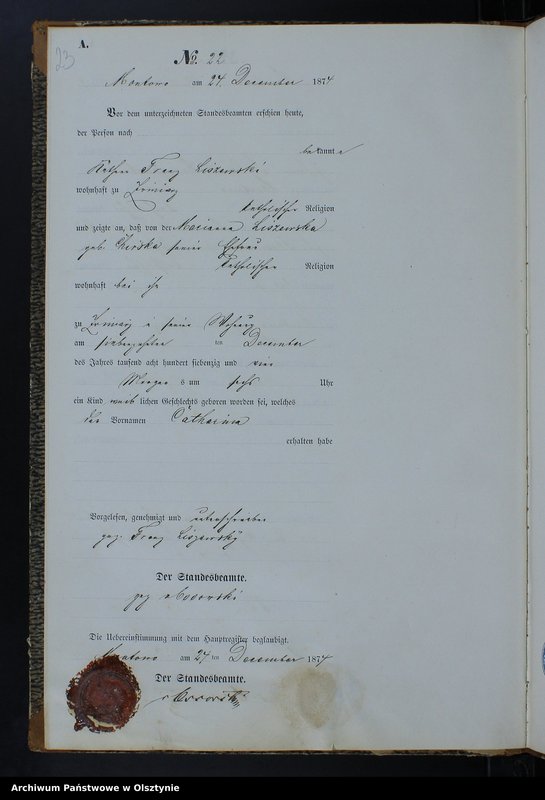 A.
23
No. 22
Montowo am 24 December 1874
Vor dem unterzeichneten Standesbeamten erschien heute,
der Person nach
bekannte
Franz Liszewski
wohnhaft zu
katholischer Religion
und zeigte an, daß von der Marianna Liszewska
geb. seiner Ehefrau
katholischer Religion
wohnhaft bei ihm
zu in seiner Wohnung
am siebenzehnten ten December
des Jahres tausend acht hundert siebenzig und vier
Morgens um sechs Uhr
ein Kind weiblichen Geschlechts geboren worden sei, welches
den Vornamen Catharina
erhalten habe
Vorgelesen, genehmigt und unterschrieben
gez. Franz Liszewsky
Der Standesbeamte.
gez
Die Uebereinstimmung mit dem Hauptregister beglaubigt.
Montowo am 24 ten December 1874
Der Standesbeamte.
Archiwum Państwowe w Olsztynie